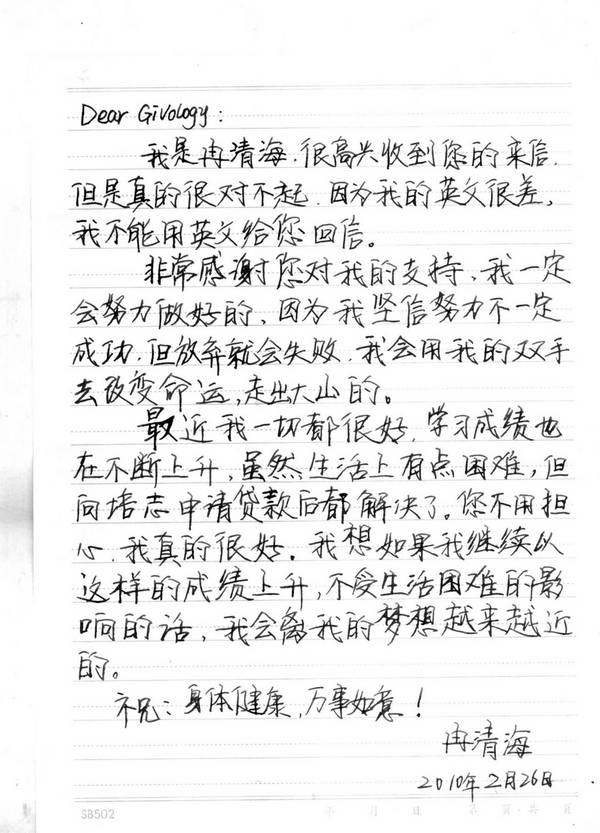 Dear Givology:
我是冉清海，很高兴收到您的来信，
但是真的很对不起，因为我的英文很差，
我不能用英文给您回信。
非常感谢您对我的支持，我一定
会努力做好的，因为我坚信努力不一定
成功，但放弃就会失败，我会用我的双手
去改变命运，走出大山的。
最近我一切都很好，学习成绩也
在不断上升，虽然生活上有点困难，但
向培志申请贷款后都解决了。您不用担
心，我真的很好。我想如果我继续以
这样的成绩上升，不受生活困难的影
响的话，我会离我的梦想越来越近
的。
祝：身体健康，万事如意！
冉清海
2010年2月26日
SB502 年 月 日 第 页 共 页